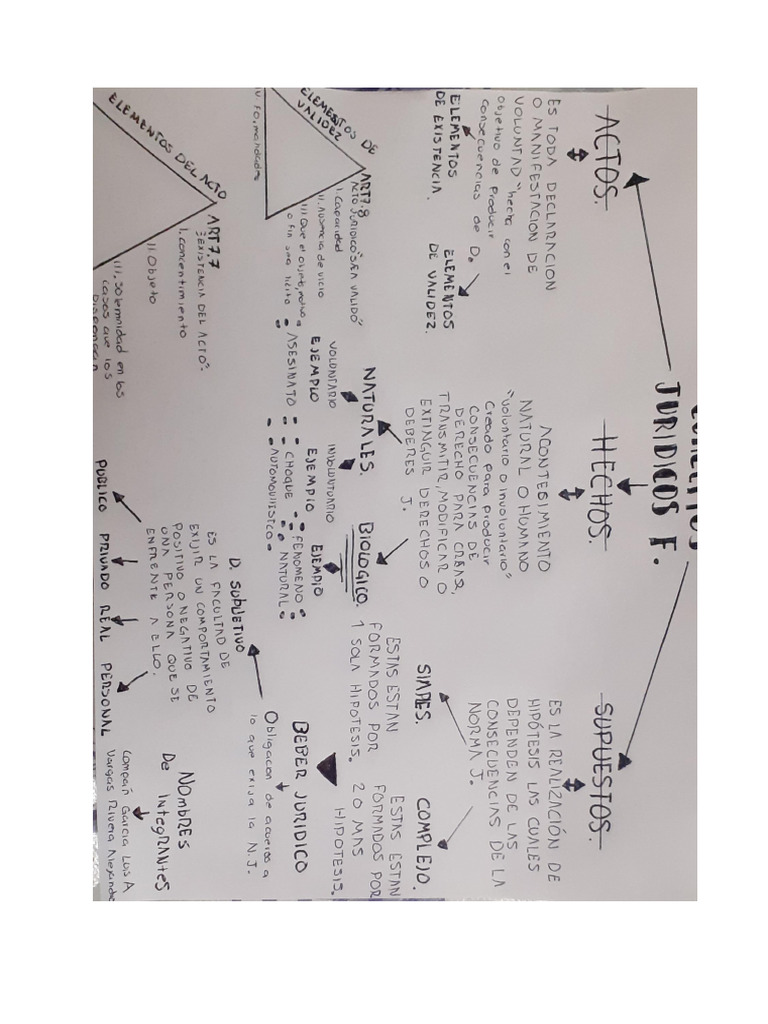 JURIDICOS F.
ACTOS.
ES TODA DECLARACION
O MANIFESTACION DE
VOLUNTAD "hecha con el
objetivo de producir
consecuencias de D.
ELEMENTOS
DE EXISTENCIA.
ELEMENTOS
DE VALIDEZ.
ELEMENTOS DE
VALIDEZ
ART 7.8
ACTO JURIDICO "SEA VALIDO"
I. Capacidad
II. Ausencia de vicio
III. Que el objeto, motivo
o fin sea licito
ELEMENTOS DEL ACTO
ART 7.7
"EXISTENCIA DEL ACTO".
I. concentimiento
II. Objeto
III. Solemnidad en los
casos que los
HECHOS.
ACONTESIMIENTO
NATURAL O HUMANO
"voluntario o involuntario"
Creado para producir
CONSECUENCIAS DE
DERECHO PARA CREAR,
TRANSMITIR, MODIFICAR O
EXTINGUIR DERECHOS O
DEBERES J.
NATURALES.
VOLUNTARIO
EJEMPLO
ASESINATO
INVOLUNTARIO
EJEMPIO
CHOQUE
AUTOMOVILISTCO
BIOLOGICO.
EJEMPIO
FENOMENO
NATURAL
SUPUESTOS.
ES LA REALIZACIÓN DE
HIPÓTESIS LAS CUALES
DEPENDEN DE LAS
CONSECUENCIAS DE LA
NORMA J.
SIMPES.
ESTAS ESTAN
FORMADOS POR
1 SOLA HIPOTESIS.
COMPLEJO.
ESTAS ESTAN
FORMADOS POR
2 O MAS
HIPOTESIS.
BEBER JURIDICO
Obligacion de acuerdo a
lo que exija la N.J.
D. SUBJETIVO
ES LA FACULTAD DE
EXIJIR UN COMPORTAMIENTO
POSITIVO O NEGATIVO DE
UNA PERSONA QUE SE
ENFRENTE A ELLO.
PUBLICO PRIVADO REAL PERSONAL
NOmBRES
De INtegrANtes
Compañ Garcia Luis A
Vargas Rivera Alexande